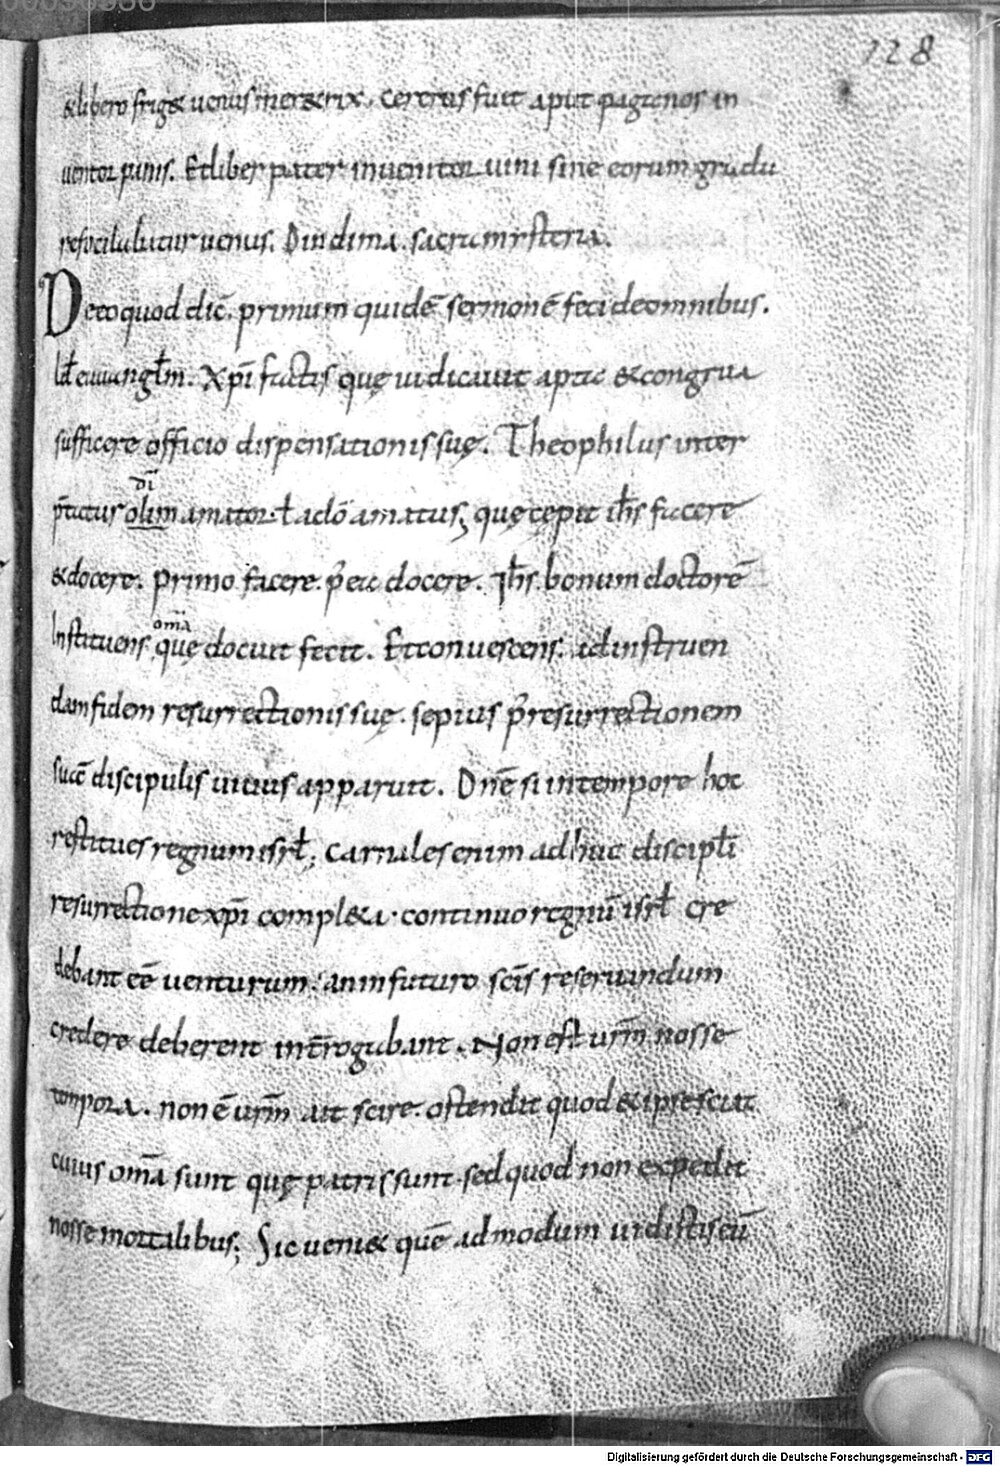 128
& libero frig& uenus mer&rix. cererus fuit aput paganos in
uentor panis. Et liber pater inuentor uini sine eorum gradu
refocilabatur uenus. Dindima. sacra mysteria.
De eo quod dic̄. primum quidē sermonē feci de omnibus.
Id ÷ euuangłm. Xpī factis quę uidicauit apta & congrua
sufficere officio dispensationis suę. Theophilus inter
p̄tatus olim amator ł a dō amatus; quę cępit ih̄s facere
dī
& docere. primo facere. p̄ea docere. Ih̄s bonum doctorē
Instituens quę docuit fecit. Et conuescens. ad instruen
om̄a
dam fidem resurrectionis suę. sepius p̄ resurrectionem
suā discipulis uiuus apparuit. Dn̄e si in tempore hoc
restitues regnum isrł; Carnales enim adhuc discipłi
resurrectione xpī compl&a. continuo regnū isrł cre
debant eē uenturum. an in futuro scīs reseruandum
credere deberent int̄rogabant. Non est ur̄m nosse
tempora. non ē ur̄m ait scire. ostendit quod & ipse sciat
cuius om̄a sunt quę patris sunt. sed quod non expedit
nosse mortalibus; Sic ueni& quē admodum uidistis eū
Digitalisierung gefördert durch die Deutsche Forschungsgemeinschaft - DFG